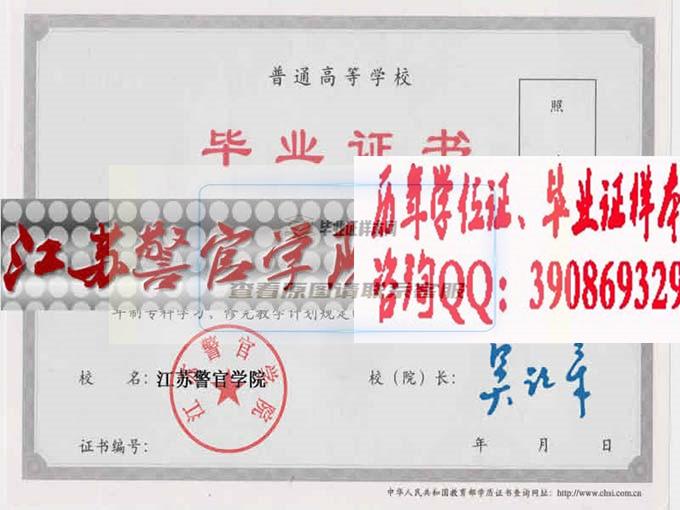 普通高等学校
毕业证书
照
历年学位证、毕业证样本
毕业证样本网
江苏警官学院
咨询QQ：390869329
查看原图请联系客服
年制专科学习，修完教学计划规定
江苏警官学院
校 名：江苏警官学院
校（院）长：
证书编号：
年 月 日
中华人民共和国教育部学历证书查询网址：http://www.chsi.com.cn